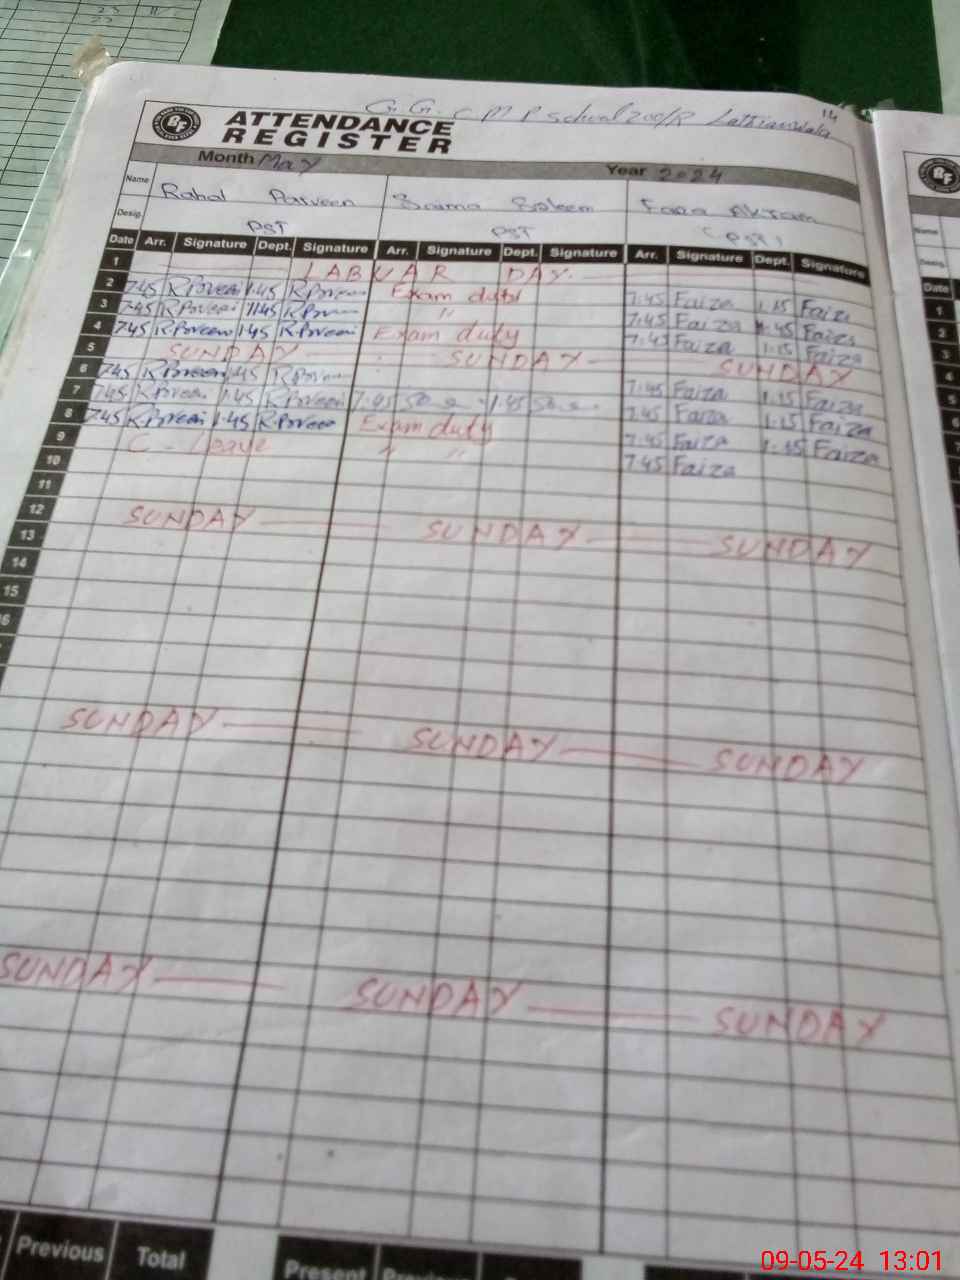 G. G. C. M P School 200/R Lathianwala 14
BF ATTENDANCE
REGISTER
Month May Year 2024
Name Rahal Parveen Saima Saleem Faiza Akram
Desig. PST PST (PST)
Date Arr. Signature Dept. Signature Arr. Signature Dept. Signature Arr. Signature Dept. Signature
1 LABUAR DAY
2 7.45 R.Parveen 1.45 R.Parveen Exam duty 7.45 Faiza 1.15 Faiza
3 7.45 R.Parveen 1.45 R.Parveen " 7.45 Faiza 1.45 Faiza
4 7.45 R.Parveen 1.45 R.Parveen Exam duty 7.45 Faiza 1.15 Faiza
5 SUNDAY SUNDAY SUNDAY
6 7.45 R.Parveen 1.45 R.Parveen 7.45 Faiza 1.15 Faiza
7 7.45 R.Parveen 1.45 R.Parveen 7.45 1.45 7.45 Faiza 1.15 Faiza
8 7.45 R.Parveen 1.45 R.Parveen Exam duty 7.45 Faiza 1.15 Faiza
9 C. Leave " " 7.45 Faiza
10
11
12 SUNDAY SUNDAY SUNDAY
13
14
15
SUNDAY SUNDAY SUNDAY
SUNDAY SUNDAY SUNDAY
Previous Total Present
BF
Name
Desig.
Date
1
2
3
4
5
6
09-05-24 13:01